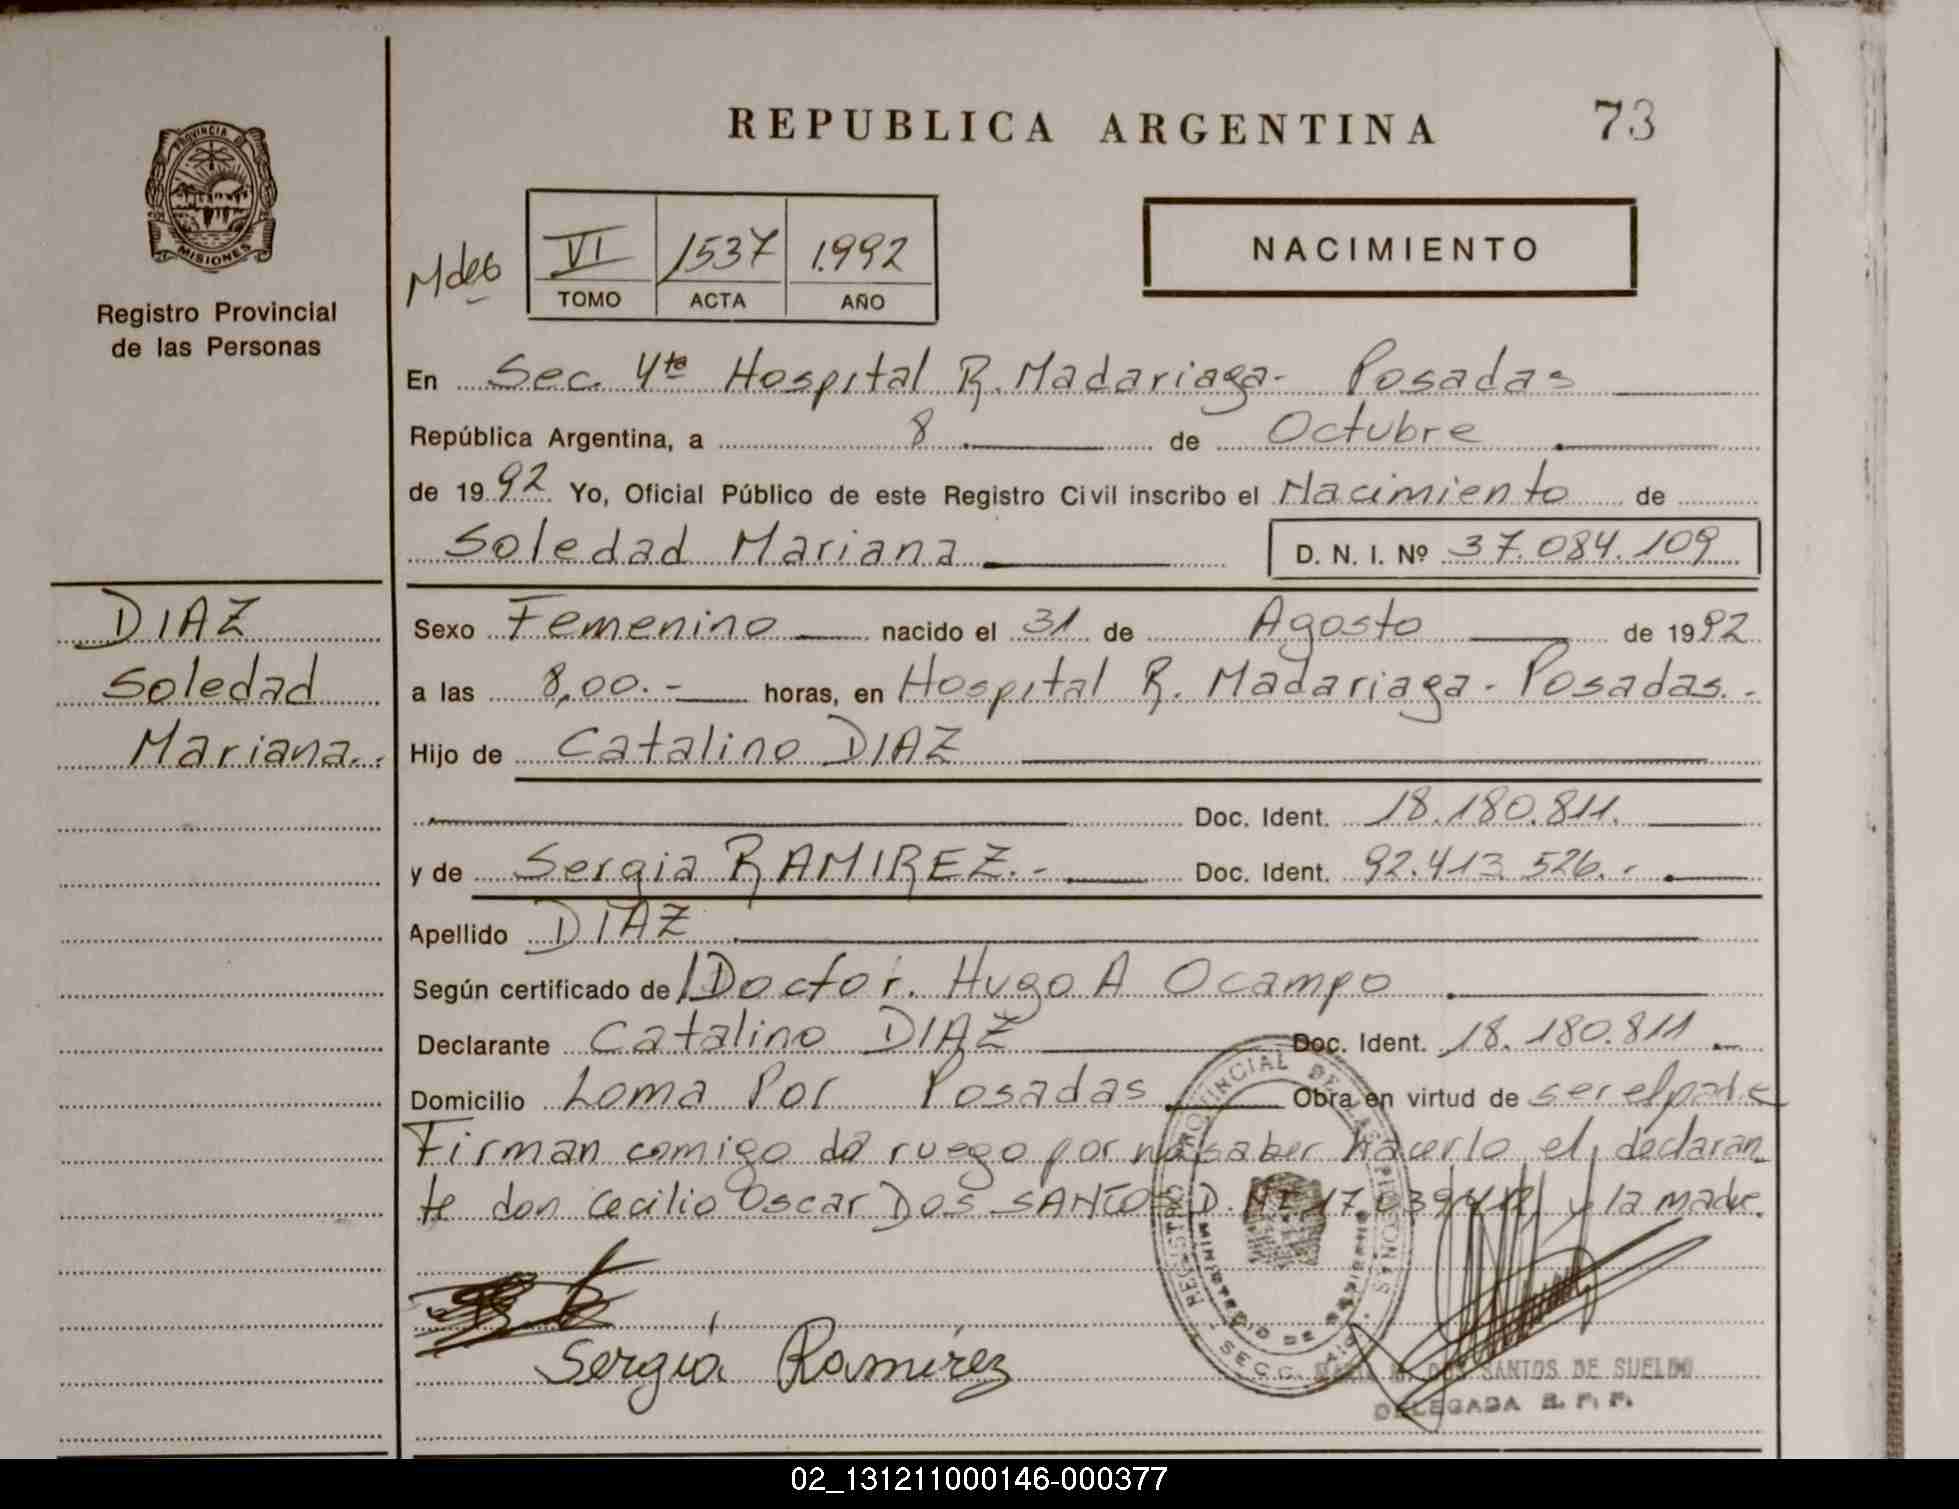 REPUBLICA ARGENTINA
73
PROVINCIA DE
MISIONES
Registro Provincial
de las Personas
VI 1537 1.992
TOMO ACTA AÑO
NACIMIENTO
En Sec. 4ta Hospital R. Madariaga- Posadas
República Argentina, a 8 de Octubre
de 1992 Yo, Oficial Público de este Registro Civil inscribo el Nacimiento de
Soledad Mariana D. N. I. Nº 37.084.109
DIAZ
Soledad
Mariana.
Sexo Femenino nacido el 31 de Agosto de 1992
a las 8,00.- horas, en Hospital R. Madariaga - Posadas.-
Hijo de Catalino DIAZ
Doc. Ident. 18.180.811.
y de Sergia RAMIREZ.- Doc. Ident. 92.413.526.-
Apellido DIAZ
Según certificado de Doctor. Hugo A Ocampo
Declarante Catalino DIAZ Doc. Ident. 18.180.811
Domicilio Loma Por Posadas Obra en virtud de ser el padre
Firman comigo a ruego por no saber hacerlo el declaran
te don Cecilio Oscar DOS SANTOS D.N.I. y la madre.
Sergia Ramírez
REGISTRO PROVINCIAL DE LAS PERSONAS
MINISTERIO DE
SECC.
DOS SANTOS DE SUELDO
DELEGADA R. P. P.
02_131211000146-000377